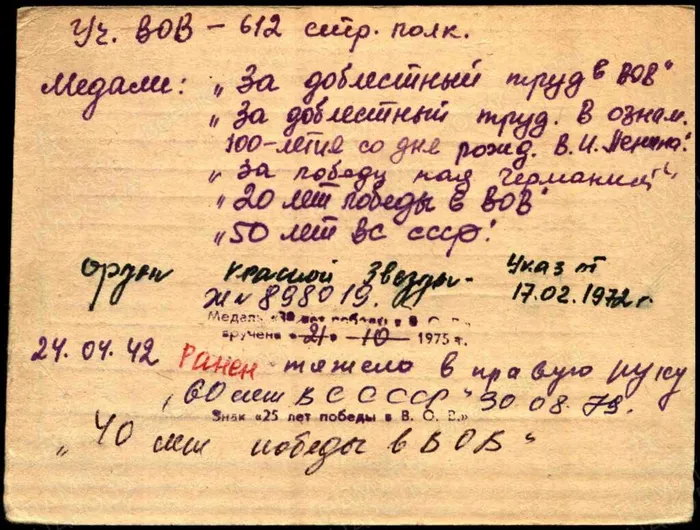 Уч. ВОВ – 612 стр. полк.
Медали: „За доблестный труд в ВОВ"
„За доблестный труд. В ознам.
100-летия со дня рожд. В.И.Ленина."
„За победу над Германией"
„20 лет победы в ВОВ"
„50 лет ВС СССР."
орден Красной Звезды - Указ от
Ж№ 898019. 17.02.1972 г.
Медаль «30 лет победы в В. О. В.»
вручена «21» 10 1975 г.
24.04.42 Ранен тяжело в правую руку
„60 лет ВС СССР" 30.08.79.
Знак «25 лет победы в В. О. В.»
„40 лет победы в ВОВ"